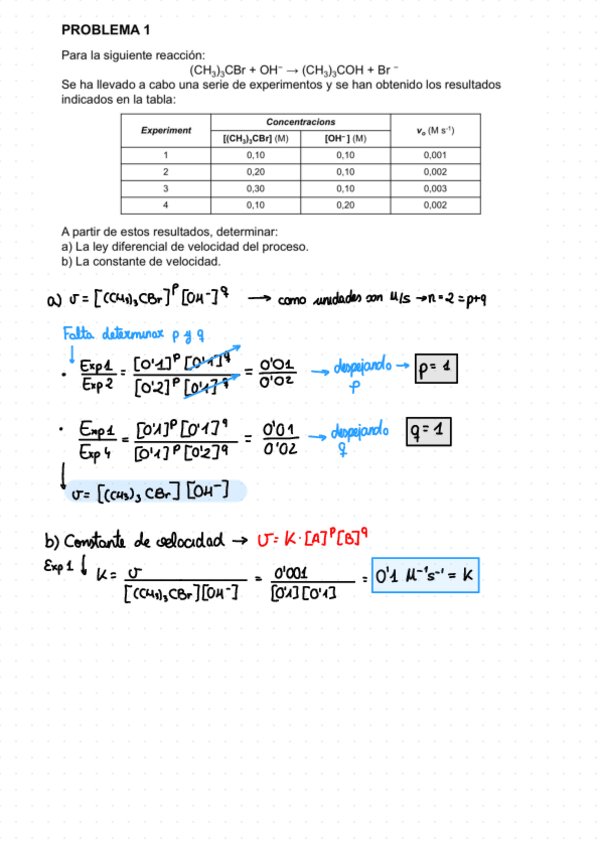 PROBLEMA 1
Para la siguiente reacción:
(CH₃)₃CBr + OH⁻ → (CH₃)₃COH + Br ⁻
Se ha llevado a cabo una serie de experimentos y se han obtenido los resultados
indicados en la tabla:
Experiment Concentracions vₒ (M s⁻¹)
[(CH₃)₃CBr] (M) [OH⁻ ] (M)
1 0,10 0,10 0,001
2 0,20 0,10 0,002
3 0,30 0,10 0,003
4 0,10 0,20 0,002
A partir de estos resultados, determinar:
a) La ley diferencial de velocidad del proceso.
b) La constante de velocidad.
a) v = [(CH₃)₃CBr]ᵖ [OH⁻]^q → como unidades son M/s → n = 2 = p+q
Falta determinar p y q
• Exp1/Exp2 = [0'1]ᵖ [0'1]^q / [0'2]ᵖ [0'1]^q = 0'01/0'02 → despejando p → p = 1
• Exp1/Exp4 = [0'1]ᵖ [0'1]^q / [0'1]ᵖ [0'2]^q = 0'01/0'02 → despejando q q = 1
v = [(CH₃)₃ CBr] [OH⁻]
b) Constante de velocidad → v = K · [A]ᵖ [B]^q
Exp 1 ↓ K = v / [(CH₃)₃CBr][OH⁻] = 0'001 / [0'1][0'1] = 0'1 M⁻¹s⁻¹ = K